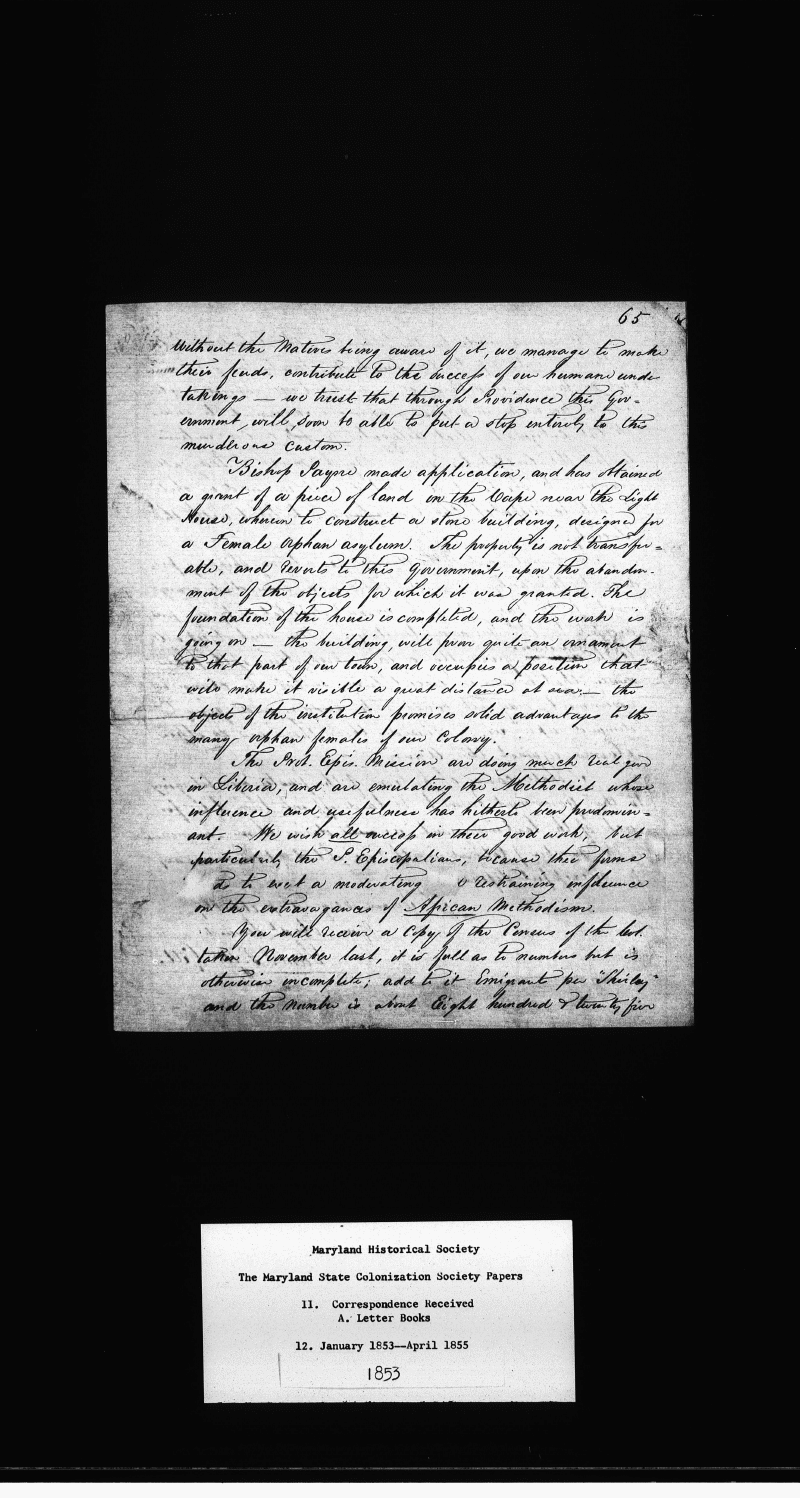 65
without the Natives being aware of it, we manage to make
their feuds, contribute to the success of our humane under
takings — we trust that through Providence this Gov=
ernment, will, soon be able to put a stop entirely to this
murderous custom.
Bishop Payne made application, and has obtained
a grant of a piece of land on the Cape near the Light
House, whereon to construct a stone building, designed for
a Female Orphan asylum. The property is not transfer=
able, and reverts to this Government, upon the abandon-
ment of the objects for which it was granted. The
foundation of the house is completed, and the work is
going on — the building, will prove quite an ornament
to that part of our town, and occupies a position that
will make it visible a great distance at sea — the
objects of the institution promises solid advantages to the
many orphan females of our Colony.
The Prot. Epis. Mission are doing much real good
in Liberia, and are emulating the Methodist whose
influence and usefulness has hitherto been predomin=
ant. We wish all success in their good work, but
particularly the P. Episcopalians, because their forms
to exert a moderating restraining influence
on the extravagances of African Methodism.
You will receive a Copy of the Census of the Col.
taken November last, it is full as to numbers but is
otherwise incomplete; add to it Emigrants per "Shirley"
and the number is about Eight hundred & twenty five
Maryland Historical Society
The Maryland State Colonization Society Papers
11. Correspondence Received
A. Letter Books
12. January 1853--April 1855
1853